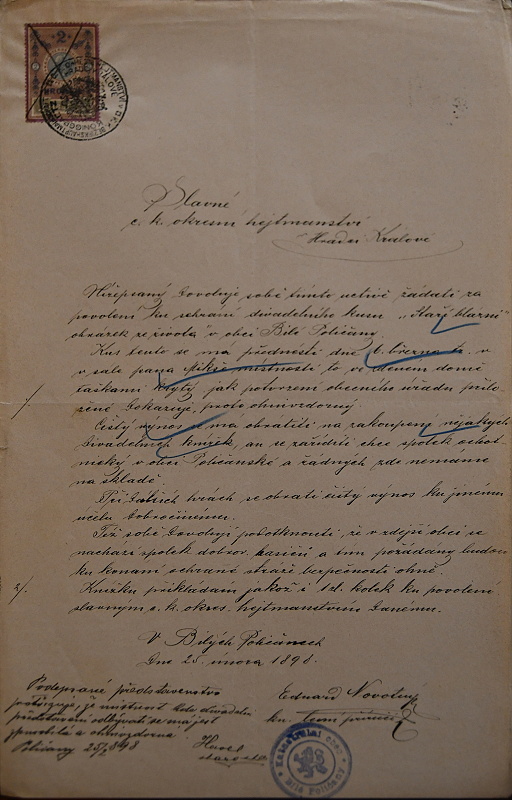 2
Slavné
c. k. okresní hejtmanství
Hradci Králové
Nížepsaný dovoluje sobě tímto uctivě žádati za
povolení ku sehrání divadelního kusu „Staří blázni"
obrázek ze života" v obci Bílé Poličany.
Kus tento se má přednésti dne 6. března t. r. v
v sále pana místnosti to ve domě
taškami krytý, jak potvrzení obecního úřadu přilo
1/. žené dokazuje, proto ohnivzdorný.
Čistý výnos má obrátiti na zakoupený nějakých
divadelních knížek, an se zaříditi chce spolek ochot
nický v obci Poličanské a žádných zde nemáme
na skladě.
Při dalších hrách se obrátí čistý výnos ku jinému
účelu dobročinnému.
Též sobě dovoluji podotknouti, že v zdejší obci se
nachází spolek dobrov. hasičů a ten požádaný bude
ku konání ochrané stráže bezpečnosti ohně.
2/. Knížku přikládám jakož i 1 zl. kolek ku povolení
slavným c. k. okres. hejtmanstvím danému.
V Bílých Poličanech
Dne 25. února 1898.
Podepsané představenstvo
potvrzuje, že místnost kde divadelní
představení odbývati se má jest
a ohnivzdorna.
Poličany 25/2 898
starosta
Eduard Novotný
Bílé Poličany